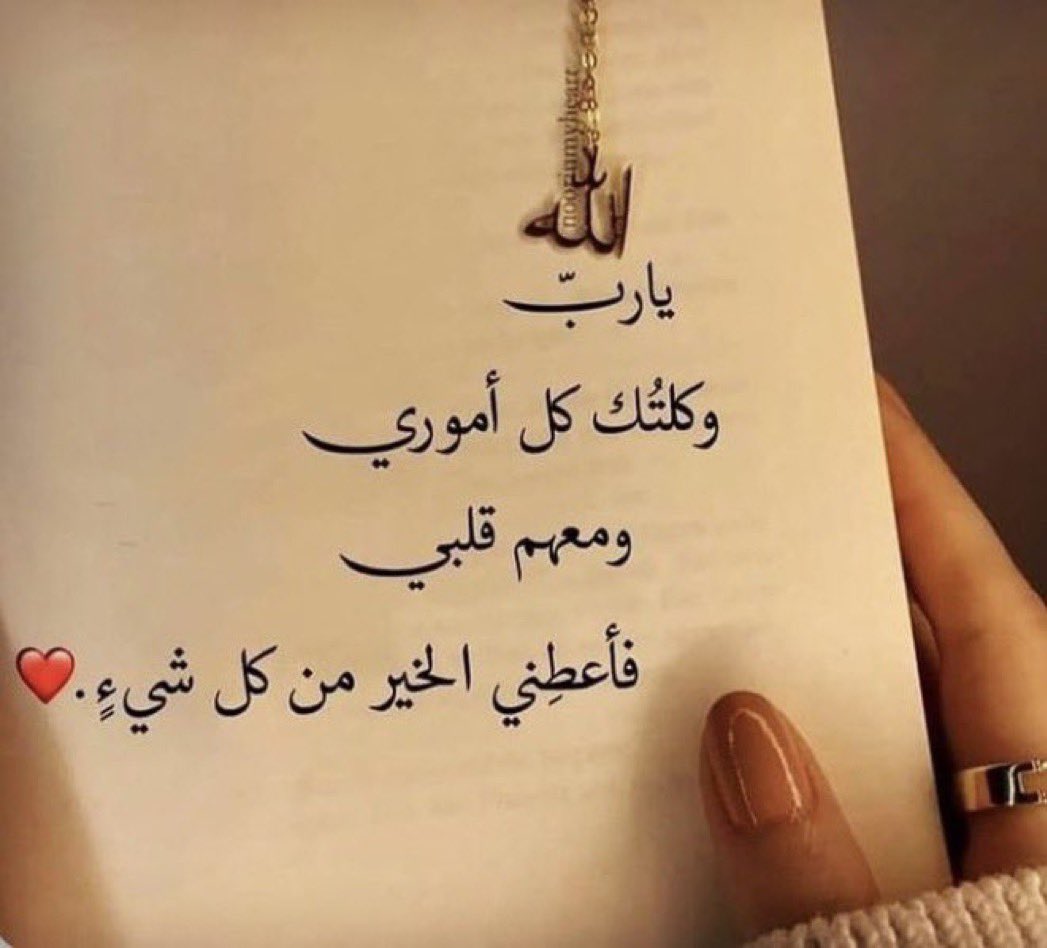 noorinmyheart
الله
يا ربّ
وكلتُك كل أموري
ومعهم قلبي
فأعطِني الخير من كل شيءٍ.❤️